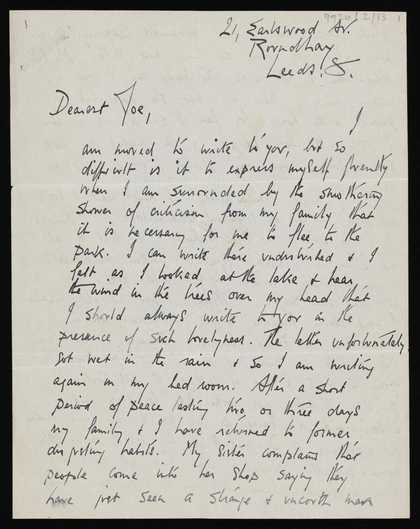 21, Earlswood Av.
Roundhay
Leeds. 8.
Dearest Joe,
I
am moved to write to you, but so
difficult is it to express myself fluently
when I am surrounded by the smothering
shower of criticism from my family that
it is necessary for me to flee to the
Park. I can write there undisturbed & I
felt as I looked at the lake & hear
the wind in the trees over my head that
I should always write to you in the
presence of such loveliness. The letter unfortunately
got wet in the rain & so I am writing
again in my bedroom. After a short
period of peace lasting two, or three days
my family & I have returned to former
disgusting habits. My sister complains that
people come into her shop saying they
have just seen a strange & uncouth man